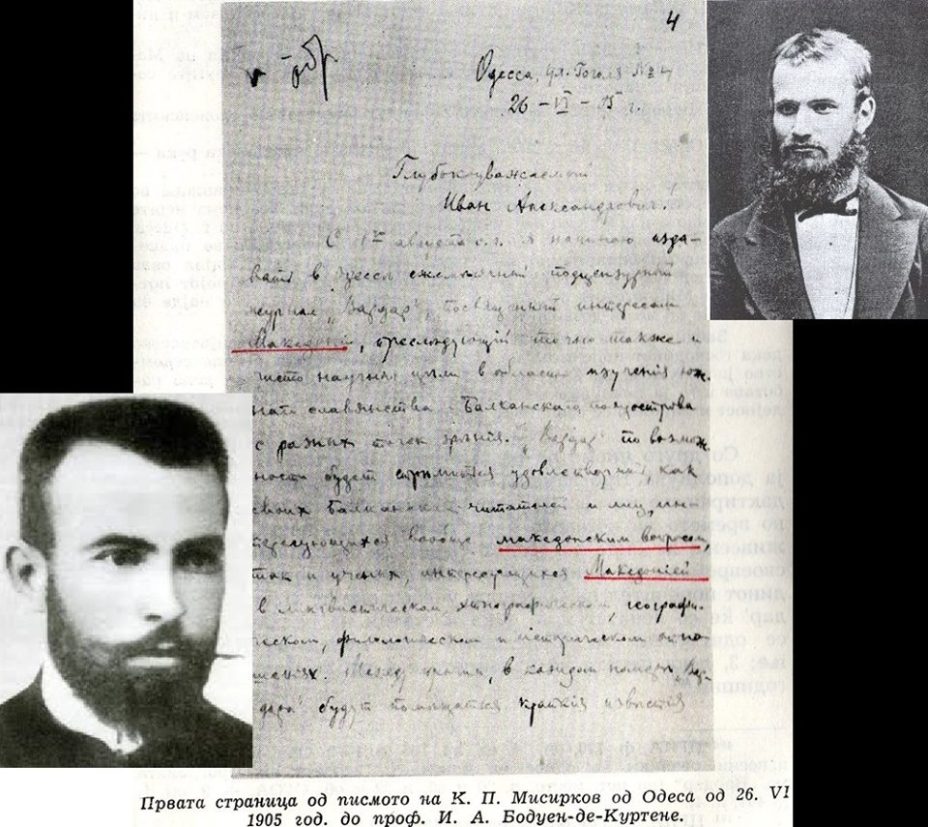 4
Одесса, ул. Гоголя №
26 – VI – 05 г.
Глубокоуважаемый
Иван Александрович!
С августа с.г. я начинаю изда-
вать в Одессе ежемесячный подцензурный
журнал „Вардар", посвященный интересам
Македоніи, преслѣдующій точно также и
чисто научныя цѣли в области изученія юж-
наго славянства и Балканскаго полуострова
с разных точек зрѣнія. „Вардар" по возмож-
ности будет стремиться удовлетворить как
своих балканских читателей и лиц, ин-
тересующихся вообще македонским вопросом,
так и ученых, интересующихся Македоніей
в лингвистическом, этнографическом, географи-
ческом, филологическом и историческом отно-
шеніях. Между прочим, в каждом номерѣ „Вар-
дара" будут помѣщаться краткія извѣстія
Првата страница од писмото на К. П. Мисирков од Одеса од 26. VI
1905 год. до проф. И. А. Бодуен-де-Куртене.